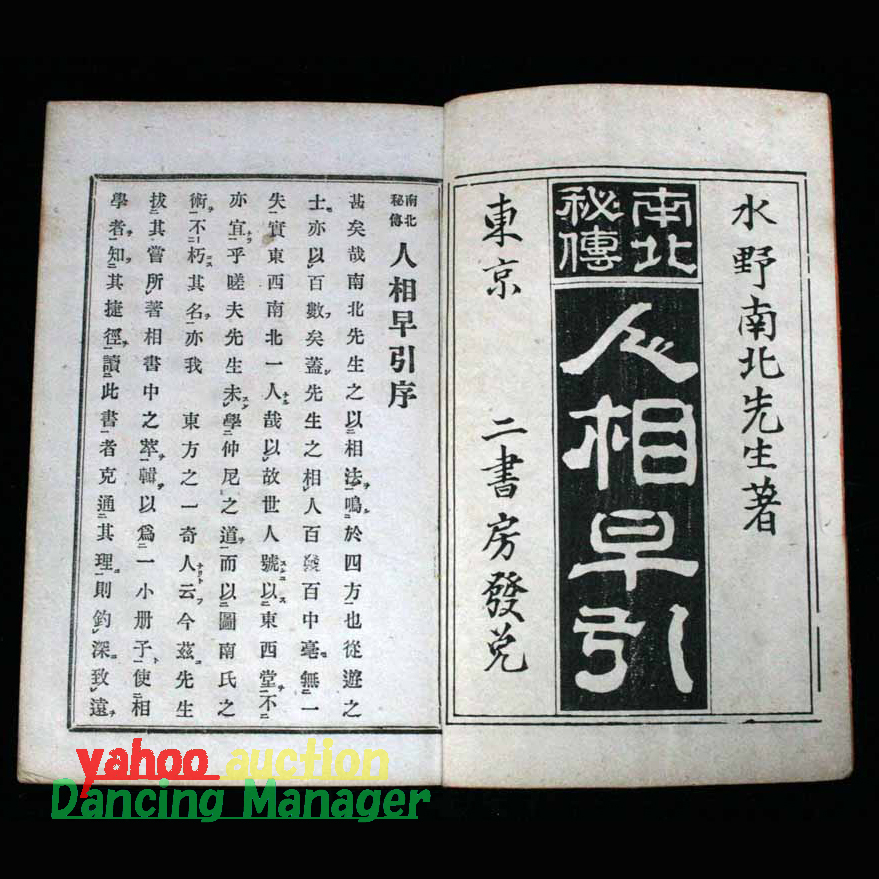 水野南北先生著
南北
秘傳
人相早引
東京　二書房發兌
南北
秘傳
人相早引序
甚矣哉南北先生之以相法鳴於四方也從遊之
士亦以百數矣蓋先生之相人百發百中毫無一
失實東西南北一人哉以故世人號以東西堂不
亦宜乎嗟夫先生未學仲尼之道而以圖南氏之
術不朽其名亦我　東方之一奇人云今茲先生
拔其嘗所著相書中之萃輯以爲一小册子使相
學者知其捷徑讀此書者克通其理則鈎深致遠
yahoo auction
Dancing Manager